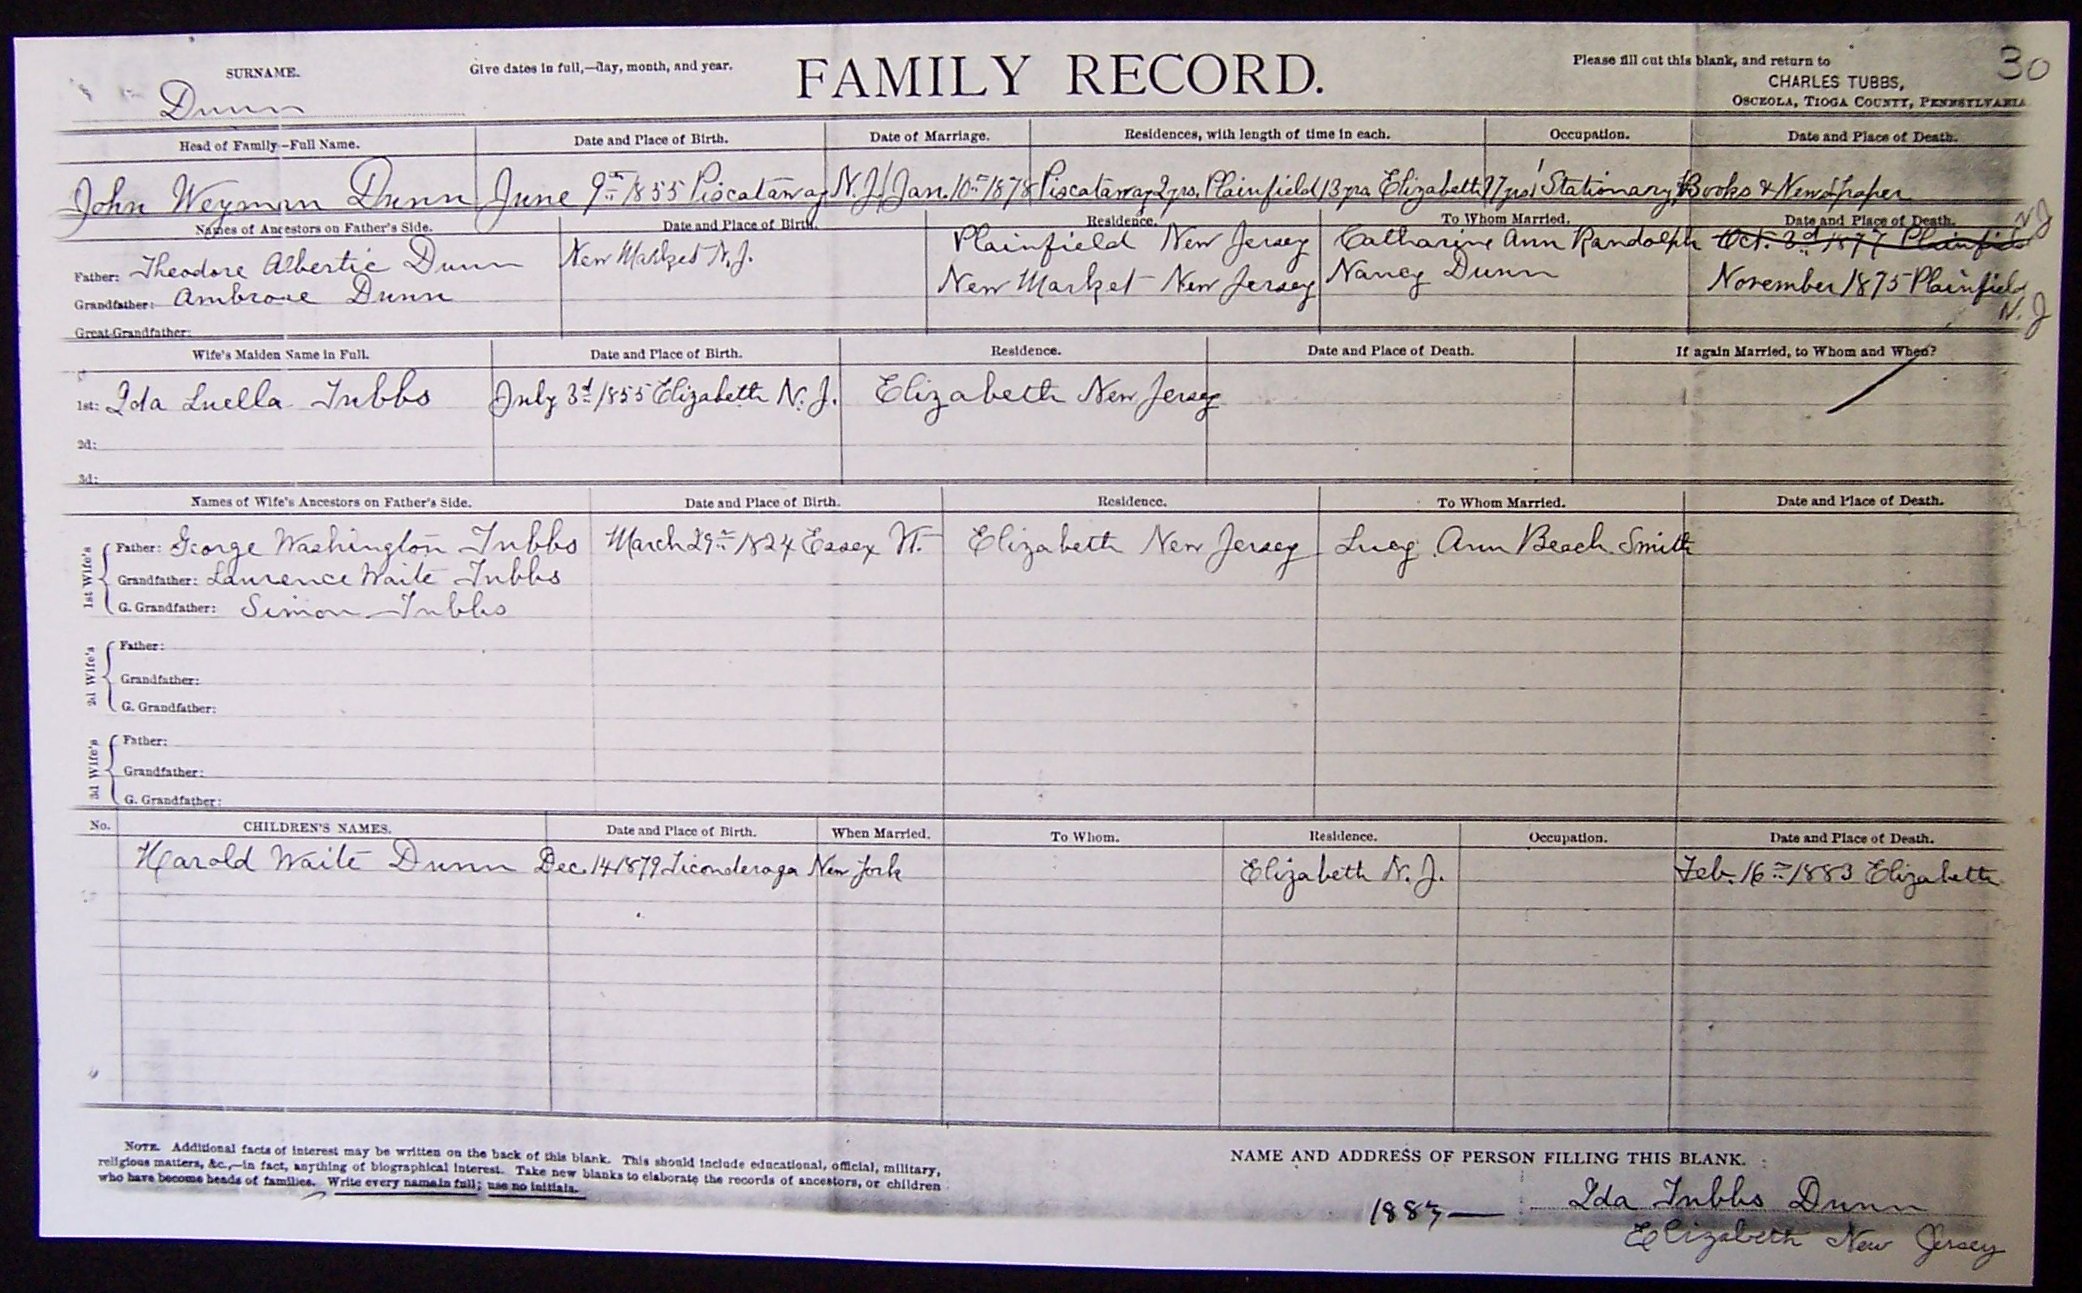 SURNAME. Give dates in full,—day, month, and year. FAMILY RECORD. Please fill out this blank, and return to 30
CHARLES TUBBS,
Dunn OSCEOLA, TIOGA COUNTY, PENNSYLVANIA
Head of Family—Full Name. Date and Place of Birth. Date of Marriage. Residences, with length of time in each. Occupation. Date and Place of Death.
John Weyman Dunn June 9th 1855 Piscataway N.J. Jan. 10th 1878 Piscataway 2 yrs. Plainfield 13 yrs Elizabeth 17 yrs Stationary, Books & Newspaper
Names of Ancestors on Father's Side. Date and Place of Birth. Residence. To Whom Married. Date and Place of Death.
Father: Theodore Albertie Dunn New Market N.J. Plainfield New Jersey Catharine Ann Randolph Oct. 3d 1877 Plainfield N J
Grandfather: Ambrose Dunn New Market New Jersey Nancy Dunn November 1875 Plainfield N. J
Great-Grandfather:
Wife's Maiden Name in Full. Date and Place of Birth. Residence. Date and Place of Death. If again Married, to Whom and When?
1st: Ida Luella Tubbs July 3d 1855 Elizabeth N. J. Elizabeth New Jersey
2d:
3d:
Names of Wife's Ancestors on Father's Side. Date and Place of Birth. Residence. To Whom Married. Date and Place of Death.
1st Wife's
Father: George Washington Tubbs March 29th 1824 Essex Vt. Elizabeth New Jersey Lucy Ann Beach Smith
Grandfather: Laurence Waite Tubbs
G. Grandfather: Simon Tubbs
2d Wife's
Father:
Grandfather:
G. Grandfather:
3d Wife's
Father:
Grandfather:
G. Grandfather:
No. CHILDREN'S NAMES. Date and Place of Birth. When Married. To Whom. Residence. Occupation. Date and Place of Death.
Harold Waite Dunn Dec. 14 1879 Ticonderoga New York Elizabeth N. J. Feb. 16th 1883 Elizabeth
NOTE. Additional facts of interest may be written on the back of this blank. This should include educational, official, military,
religious matters, &c.,—in fact, anything of biographical interest. Take new blanks to elaborate the records of ancestors, or children
who have become heads of families. Write every name in full; use no initials.
NAME AND ADDRESS OF PERSON FILLING THIS BLANK.
Ida Tubbs Dunn
Elizabeth New Jersey